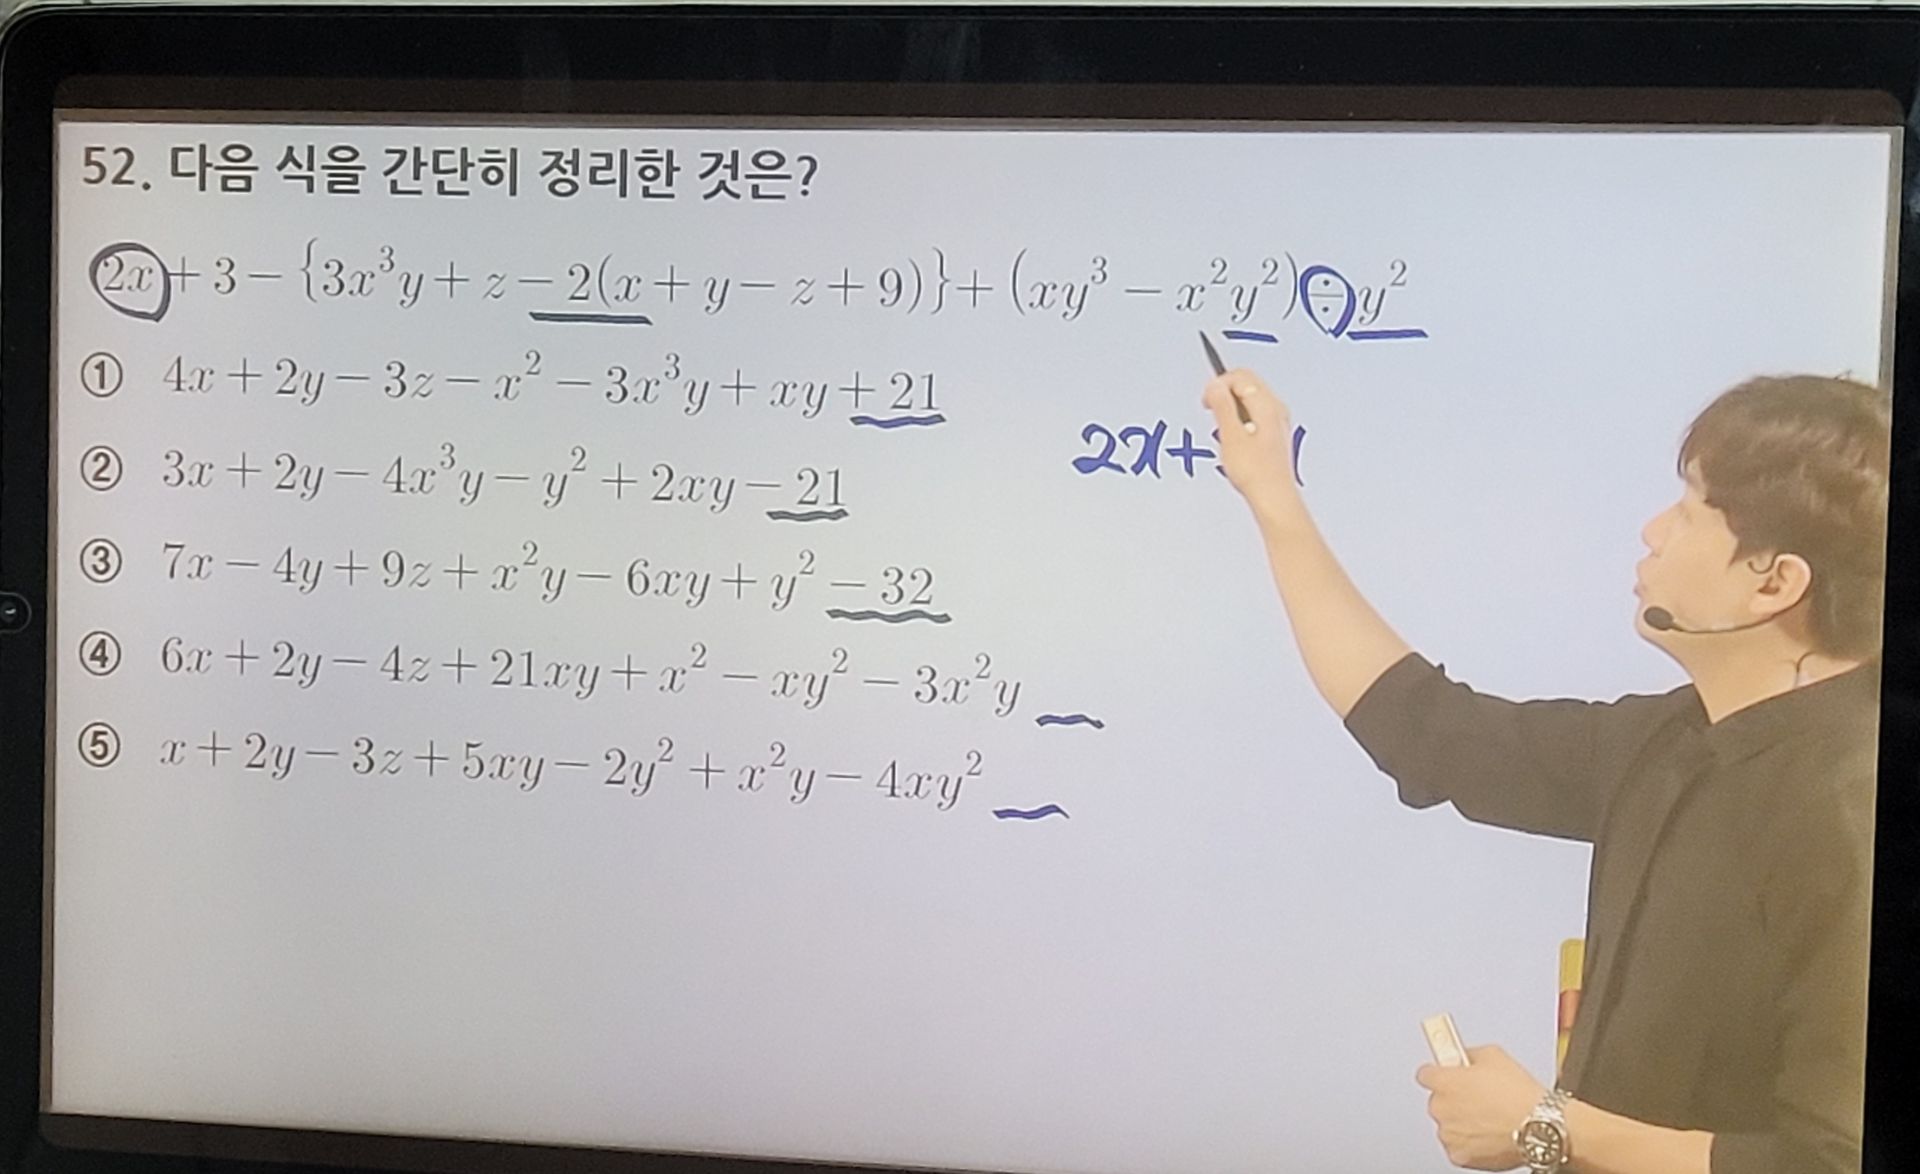 52. 다음 식을 간단히 정리한 것은?
2x + 3 − {3x³y + z − 2(x + y − z + 9)} + (xy³ − x²y²) ÷ y²
① 4x + 2y − 3z − x² − 3x³y + xy + 21
② 3x + 2y − 4x³y − y² + 2xy − 21
③ 7x − 4y + 9z + x²y − 6xy + y² − 32
④ 6x + 2y − 4z + 21xy + x² − xy² − 3x²y
⑤ x + 2y − 3z + 5xy − 2y² + x²y − 4xy²
2x+